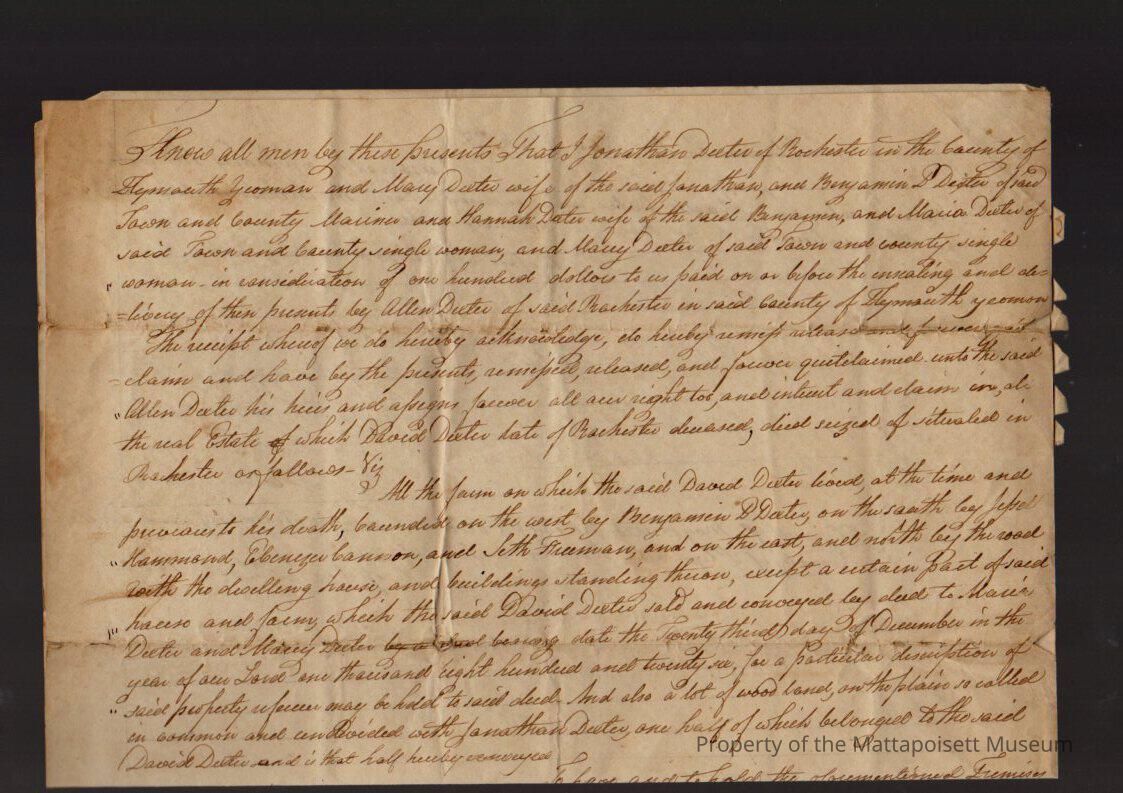 Know all men by these presents That I Jonathan Dexter of Rochester in the County of
Plymouth Yeoman and Mary Dexter wife of the said Jonathan, and Benjamin D Dexter of said
Town and County Mariner and Hannah Dexter wife of the said Benjamin, and Maria Dexter of
said Town and County single woman, and Mary Dexter of said Town and county single
woman - in consideration of one hundred dollars to us paid on or before the ensealing and de=
=livery of these presents by Allen Dexter of said Rochester in said County of Plymouth yeoman
The receipt whereof we do hereby acknowledge, do hereby remiss release and forever quit
=claim and have by the presents, remissed, released, and forever quitclaimed unto the said
Allen Dexter his heirs and assigns forever all our right to, and interest and claim in, all
the real Estate of which David Dexter late of Rochester deceased, died seized of situated in
Rochester as follows - Viz
All the farm on which the said David Dexter lived, at the time and
previous to his death, bounded on the west by Benjamin D Dexter, on the south by Jesse
Hammond, Ebenezer Cannon, and Seth Freeman, and on the east, and north by the road
with the dwelling house, and buildings standing thereon, except a certain Part of said
house and farm, which the said David Dexter sold and conveyed by deed to Maria
Dexter and Mary Dexter by a deed bearing date the Twenty third day of December in the
year of our Lord one thousand eight hundred and twenty six, for a particular discription of
said property referrence may be held to said deed - And also a lot of wood land, on the plain so called
in common and undivided with Jonathan Dexter, one half of which belonged to the said
David Dexter and is that half hereby conveyed
To have and to hold the aforementioned Premises
Property of the Mattapoisett Museum